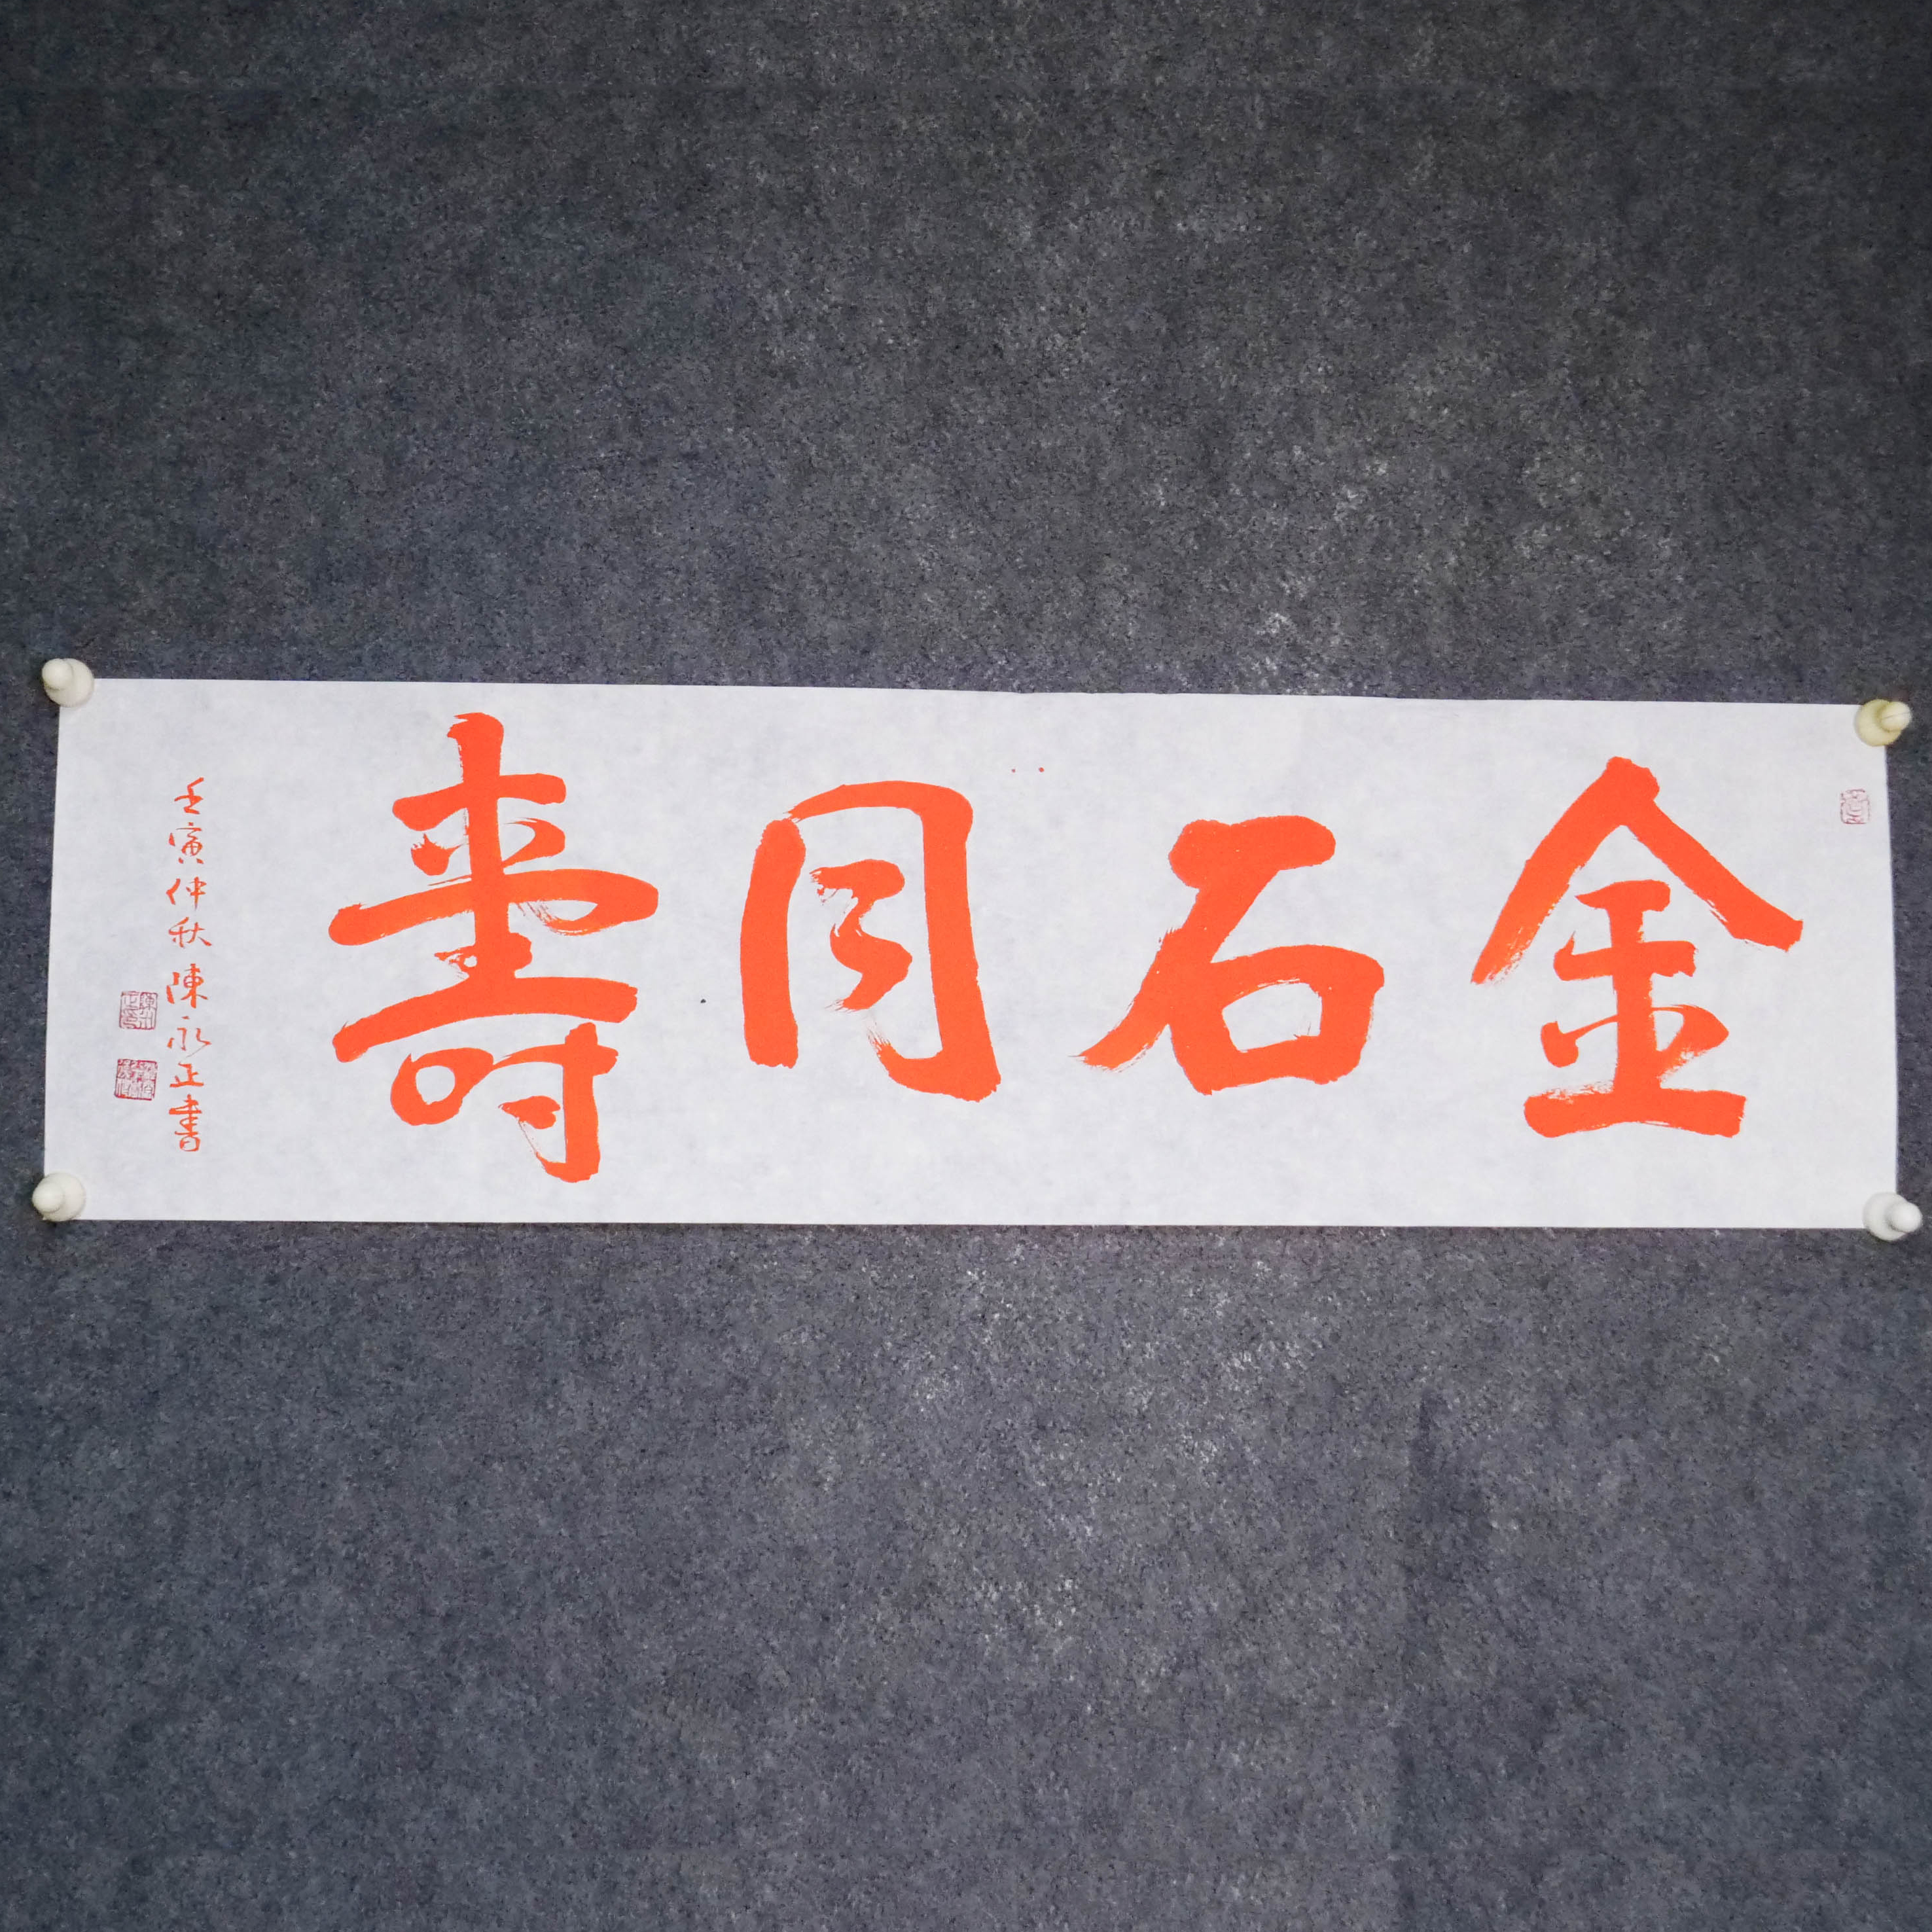 金石同壽
壬寅仲秋陳永正書